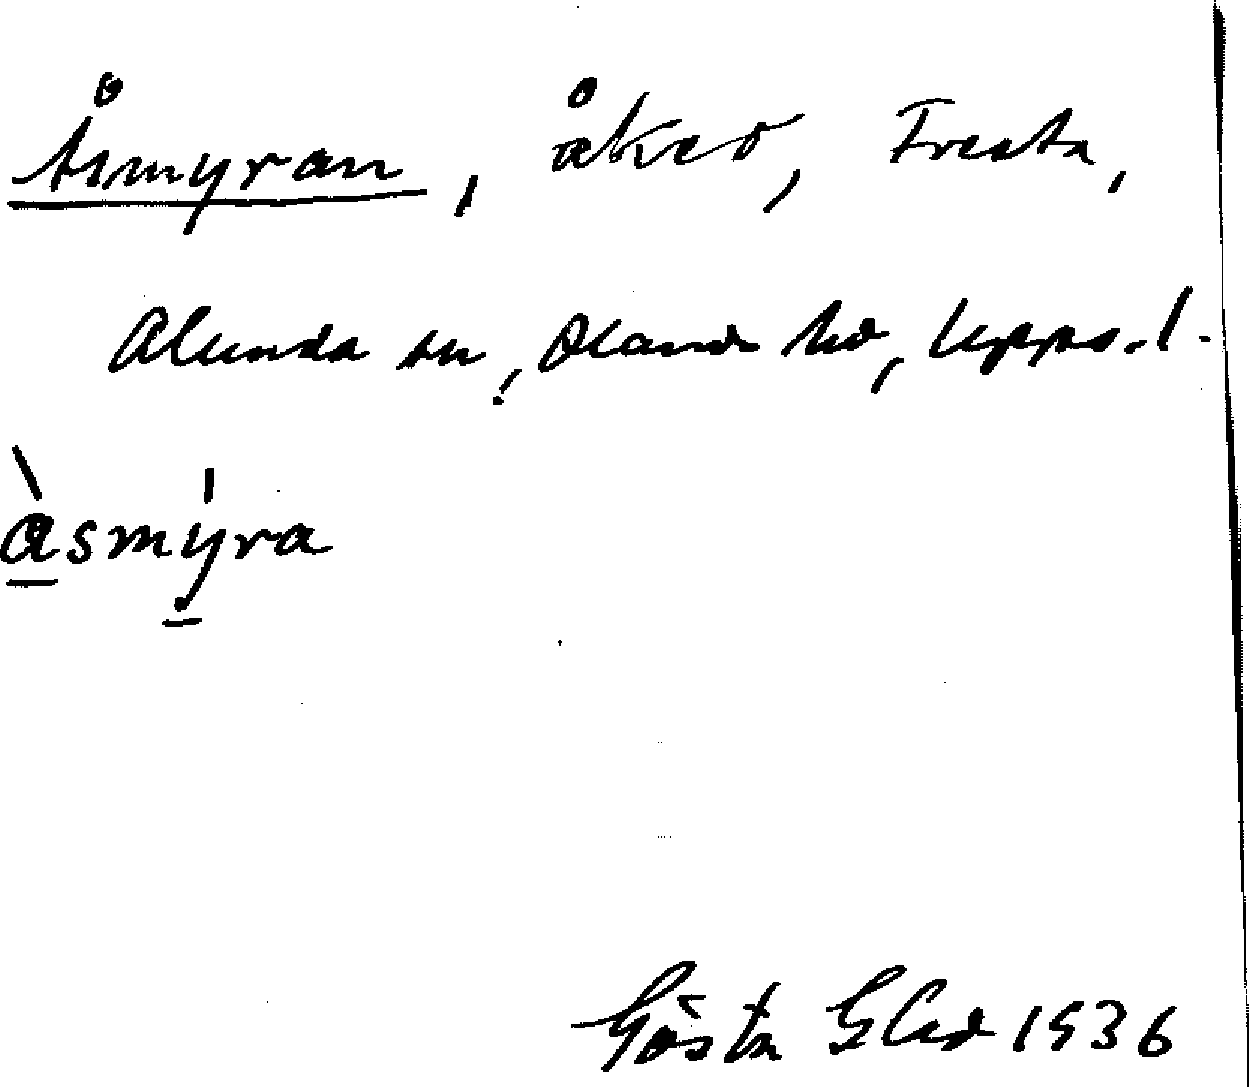 Åsmyran, åker, Fresta,
Alunda sn, Olands hd, Upps. l.
åsmyra
Gösta Elid 1936